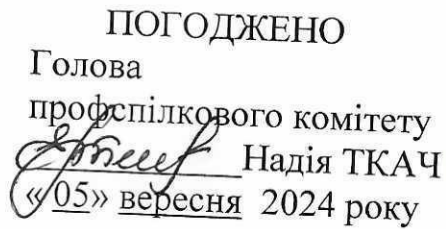 ПОГОДЖЕНО
Голова
профспілкового комітету
Надія ТКАЧ
«05» вересня 2024 року